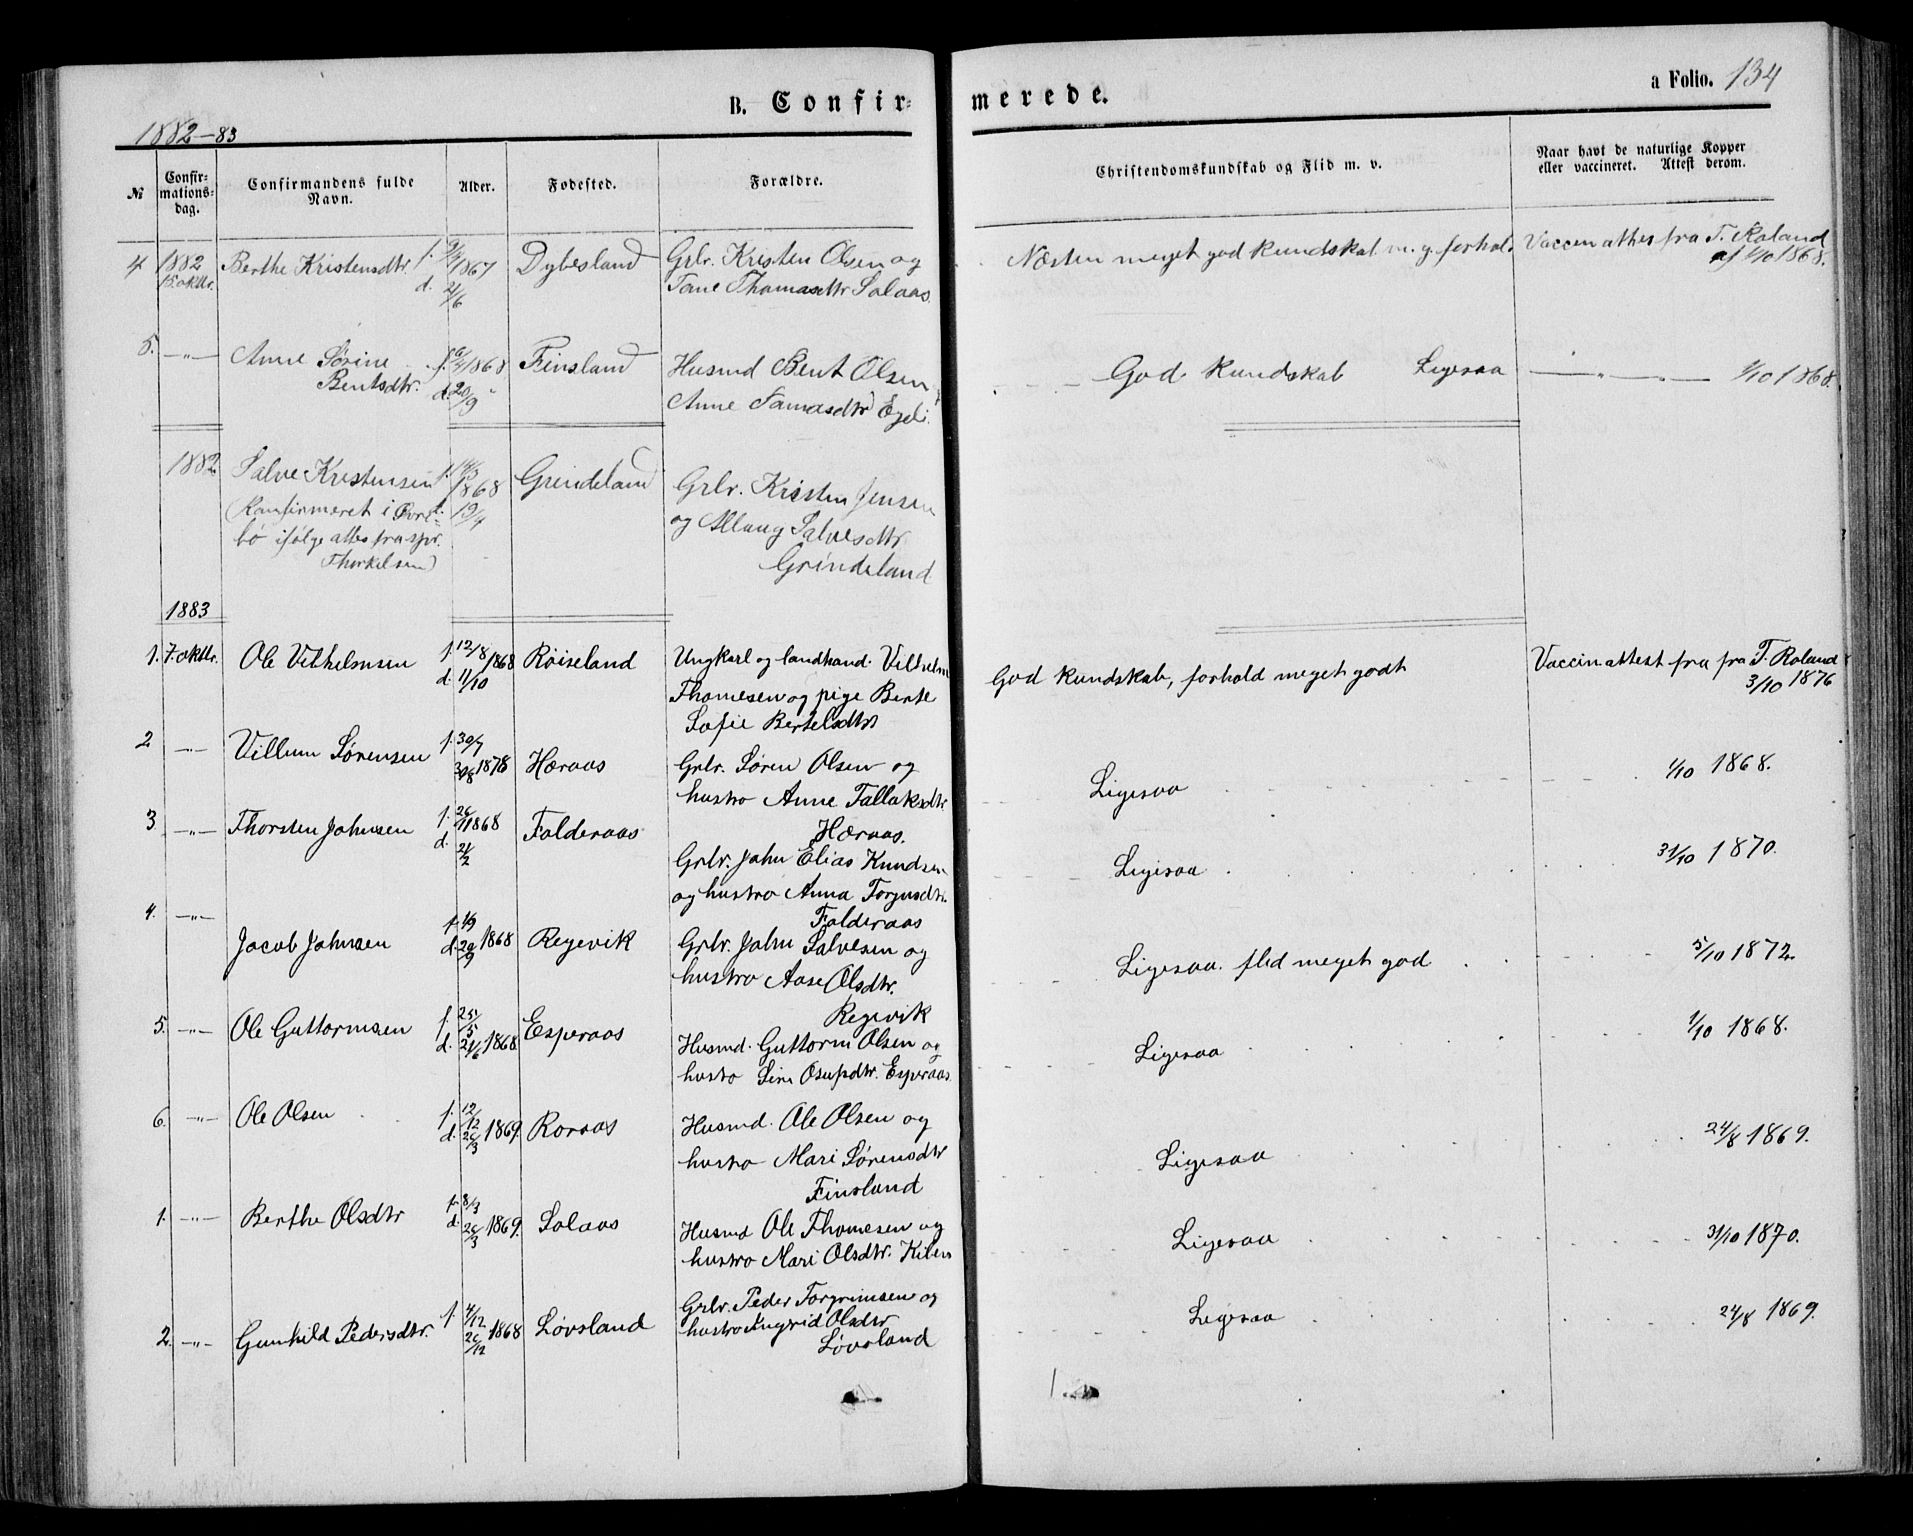 B. Confir-
merede.
a Folio. 134
1882-83
№
Confir-
mations-
dag.
Confirmandens fulde
Navn.
Alder.
Fødested.
Forældre.
Christendomskundskab og Flid m. v.
Naar havt de naturlige Kopper
eller vaccineret. Attest derom.
4 1882 15 oktbr. Berthe Kristensdtr. f. 9/4 1867 d. 21/6 Dybesland Grbr. Kristen Olsen og
Tane Thomasdtr Salaas.
Næsten meget god kundskab m. g. forhold Vaccinattes fra T. Roland
af 1/10 1868.
5. —„— Anne Sørine f. 6/4 1868 Finsland Husmd Bent Olsen
Bentsdtr. d. 20/9 Anne Samasdtr Egeli.
God kundskab Ligesaa —„— 1/10 1868.
1882 Salve Kristensen f. 14/3 1868 Grindeland Grbr. Kristen Jensen
(Konfirmeret i Øvre- 19/4 og Allaug Salvesdtr
bø ifølge attes fra spr. Grindeland
Thorkelsen)
1883
1. 7. oktbr. Ole Vilhelmsen f. 12/8 1868 d. 11/10 Røiseland Ungkarl og landhand. Vilhelm
Thomesen og pige Berte
Sofie Bertelsdtr
God kundskab, forhold meget godt Vaccinattest fra fra T. Roland
3/10 1876
2 —„— Villum Sørensen f. 30/7 30/8 1878 Hæraas Grbr. Søren Olsen og
hustro Anne Tallaksdtr
Hæraas.
Ligesaa 1/10 1868.
3. —„— Thorsten Johnsen f. 26/1 1868 d. 21/2 Falderaas
Grbr. John Elias Knudsen
og hustro Anna Torjusdtr.
Falderaas
Ligesaa 31/10 1870.
4. —„— Jacob Johnsen f. 1/9 d. 29/9 1868 Regevik Grbr. John Salvesen og
hustro Aase Olsdtr.
Regevik
Ligesaa. flid meget god 5/10 1872.
5. —„— Ole Guttormsen f. 25/5 d. 21/6 1868. Esperaas
Husmd. Guttorm Olsen og
hustro Sine Osupdtr. Esperaas.
Ligesaa 1/10 1868.
6. —„— Ole Olsen f. 12/12 d. 26/3 1869. Roraas Husmd. Ole Olsen og
hustro Mari Sørensdtr
Finsland
Ligesaa 24/8 1869.
1. —„— Berthe Olsdtr f. 8/3 d. 26/3 1869. Salaas Husmd Ole Thomesen og
hustro Mari Olsdtr. Kilen
Ligesaa 31/10 1870.
2. —„— Gunhild Pedersdtr. f. 4/12 1868 26/12 Løvsland Grbr. Peder Torgrimsen og
hustro Ingrid Olsdtr
Løvsland
Ligesaa 24/8 1869.